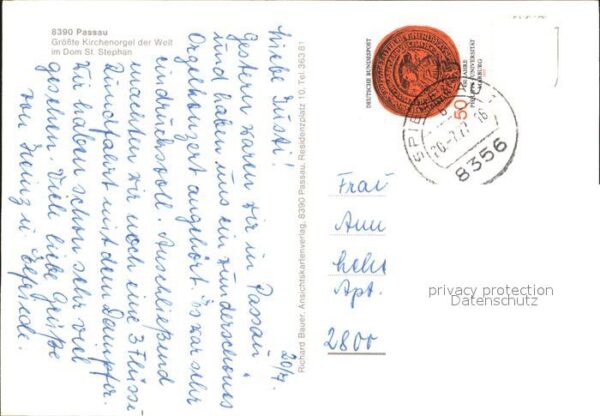 8390 Passau
Größte Kirchenorgel der Welt
im Dom St. Stephan
20/7.
Liebe Justi!
Gestern waren wir in Passau
und haben uns ein wunderschönes
Orgelkonzert angehört. Es war sehr
eindrucksvoll. Anschließend
machten wir noch eine 3 Flüsse
Rundfahrt mit dem Dampfer.
Wir haben schon sehr viel
gesehen. Viele liebe Grüße
von Heinz u. Elfriede.
Richard Bauer, Ansichtskartenverlag, 8390 Passau, Residenzplatz 10, Tel. 36381
DEUTSCHE BUNDESPOST
50
450 JAHRE
PHILIPPS-UNIVERSITÄT
MARBURG
20.-7.77
8356
Frau
Ann
Apt.
2800
privacy protection
Datenschutz